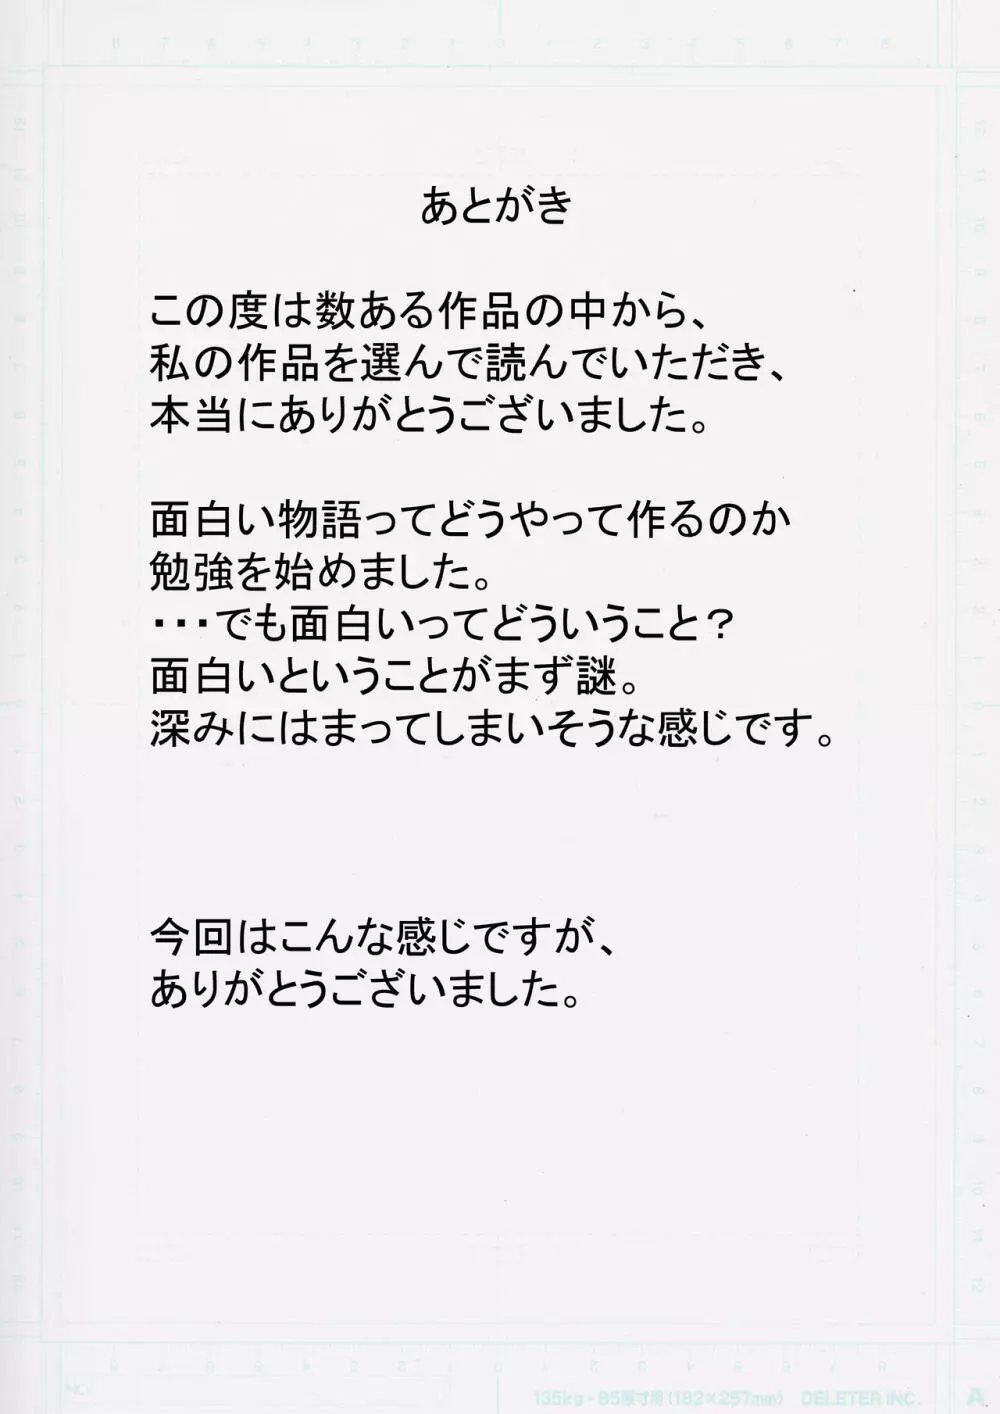 あとがき
この度は数ある作品の中から、
私の作品を選んで読んでいただき、
本当にありがとうございました。
面白い物語ってどうやって作るのか
勉強を始めました。
・・・でも面白いってどういうこと？
面白いということがまず謎。
深みにはまってしまいそうな感じです。
今回はこんな感じですが、
ありがとうございました。
135kg・B5原寸用(182×257mm) DELETER INC. A